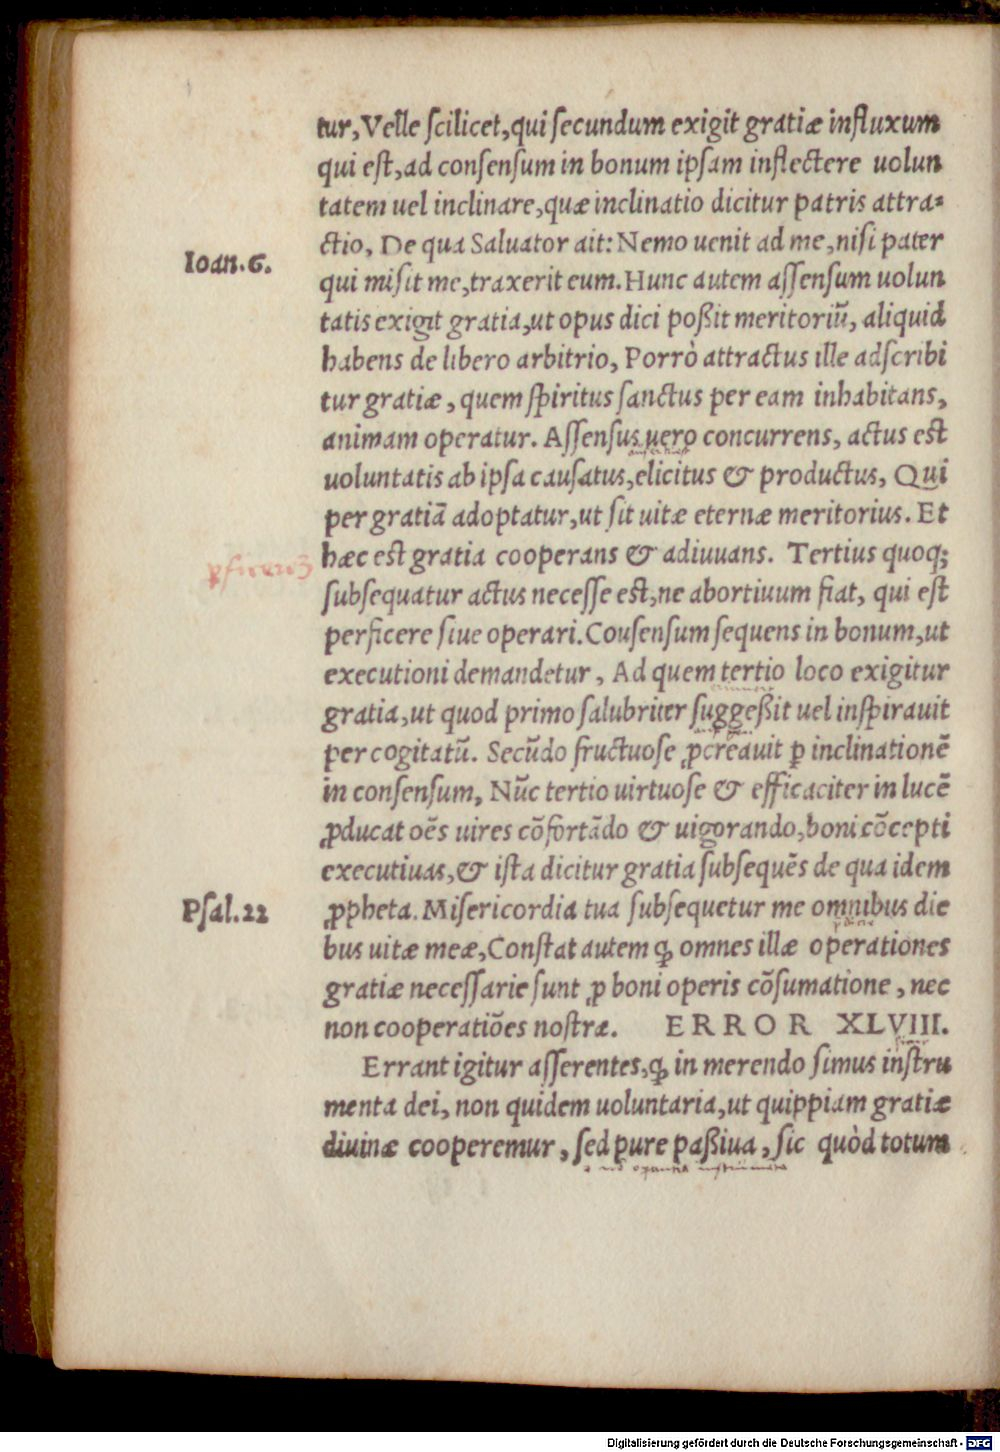 tur, Velle scilicet, qui secundum exigit gratiæ influxum
qui est, ad consensum in bonum ipsam inflectere uolun
tatem uel inclinare, quæ inclinatio dicitur patris attra-
ctio, De qua Saluator ait: Nemo uenit ad me, nisi pater
Ioan. 6.
qui misit me, traxerit eum. Hunc autem assensum uolun
tatis exigit gratia, ut opus dici poßit meritoriũ, aliquid
habens de libero arbitrio, Porrò attractus ille adscribi
tur gratiæ, quem spiritus sanctus per eam inhabitans,
animam operatur. Assensus uero concurrens, actus est
uoluntatis ab ipsa causatus, elicitus & productus, Qui
per gratiã adoptatur, ut sit uitæ eternæ meritorius. Et
hæc est gratia cooperans & adiuuans. Tertius quoq;
subsequatur actus necesse est, ne abortiuum fiat, qui est
perficere siue operari. Cousensum sequens in bonum, ut
executioni demandetur, Ad quem tertio loco exigitur
gratia, ut quod primo salubriter suggeßit uel inspirauit
per cogitatũ. Secũdo fructuose ꝓcreauit ꝑ inclinationẽ
in consensum, Nũc tertio uirtuose & efficaciter in lucẽ
ꝓducat oẽs uires cõfortãdo & uigorando, boni cõcepti
executiuas, & ista dicitur gratia subsequẽs de qua idem
Psal. 22
ꝓpheta. Misericordia tua subsequetur me omnibus die
bus uitæ meæ, Constat autem ꝙ omnes illæ operationes
gratiæ necessarie sunt ꝓ boni operis cõsumatione, nec
non cooperatiões nostræ. ERROR XLVIII.
Errant igitur asserentes, ꝙ in merendo simus instru
menta dei, non quidem uoluntaria, ut quippiam gratiæ
diuinæ cooperemur, sed pure paßiua, sic quòd totum
Digitalisierung gefördert durch die Deutsche Forschungsgemeinschaft - DFG